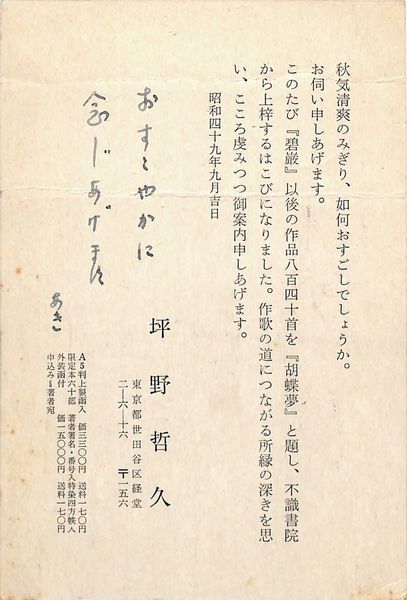 秋気清爽のみぎり、如何おすごしでしょうか。
お伺い申しあげます。
このたび『碧巌』以後の作品八百四十首を『胡蝶夢』と題し、不識書院
から上梓するはこびになりました。作歌の道につながる所縁の深きを思
い、こころ虔みつつ御案内申しあげます。
昭和四十九年九月吉日
おすこやかに
念じあげます
あき
坪野哲久
東京都世田谷区経堂
二―六―十六 〒一五六
A5判上製函入 価三三〇〇円 送料一七〇円
限定本六十部 著者署名・番号入特染四方帙入
外装函付 価一五〇〇〇円 送料一七〇円
申込み=著者宛